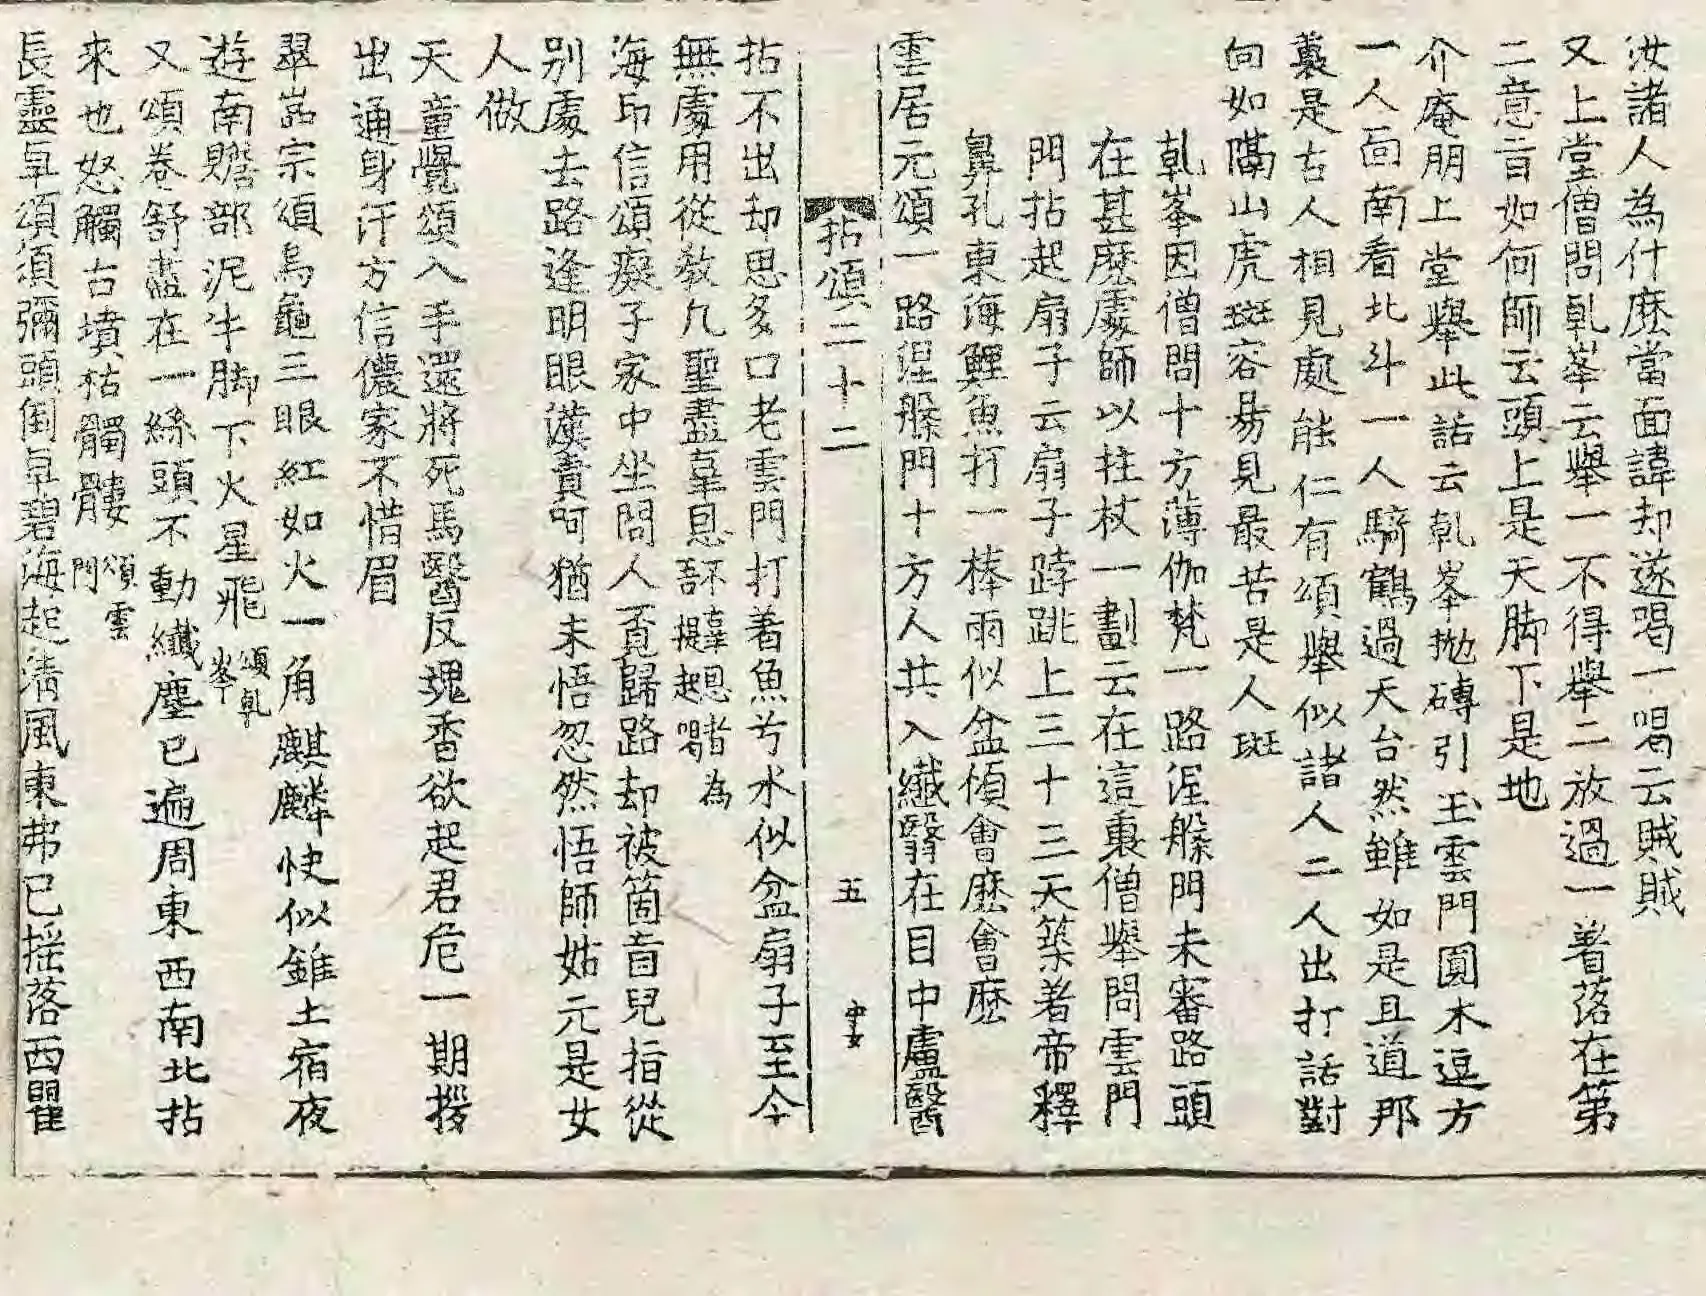 汝諸人為什麼當面諱却遂喝一喝云賊賊
又上堂僧問乹峯云舉一不得舉二放過一著落在第
二意旨如何師云頭上是天脚下是地
介庵朋上堂舉此話云乹峯拋磚引玉雲門圓木逗方
一人面南看北斗一人騎鶴過天台然雖如是且道那
裏是古人相見處能仁有頌舉似諸人二人出打話對
面如隔山虎斑容易見最苦是人斑
乹峯因僧問十方薄伽梵一路涅槃門未審路頭
在甚麼處師以拄杖一劃云在這裏僧舉問雲門
門拈起扇子云扇子𨁝跳上三十三天築著帝釋
鼻孔東海鯉魚打一棒雨似盆傾會麼會麼
雲居元頌一路涅槃門十方人共入纖翳在目中盧醫
拈頌二十二 五
拈不出却思多口老雲門打著魚兮水似盆扇子至今
無處用從教凡聖盡辜恩不辜恩者為吾提起喝
海印信頌癡子家中坐問人覓歸路却被箇盲兒指從
別處去路逢明眼漢責呵猶未悟忽然悟師姑元是女
人做
天童覺頌入手還將死馬醫反魂香欲起君危一期拶
出通身汗方信儂家不惜眉
翠嵓宗頌烏龜三眼紅如火一角麒麟快似錐土宿夜
遊南贍部泥牛脚下火星飛頌乹峯
又頌卷舒盡在一絲頭不動纖塵已遍周東西南北拈
來也怒觸古墳枯髑髏頌雲門
長靈卓頌須彌頭倒卓碧海起清風東弗已搖落西瞿